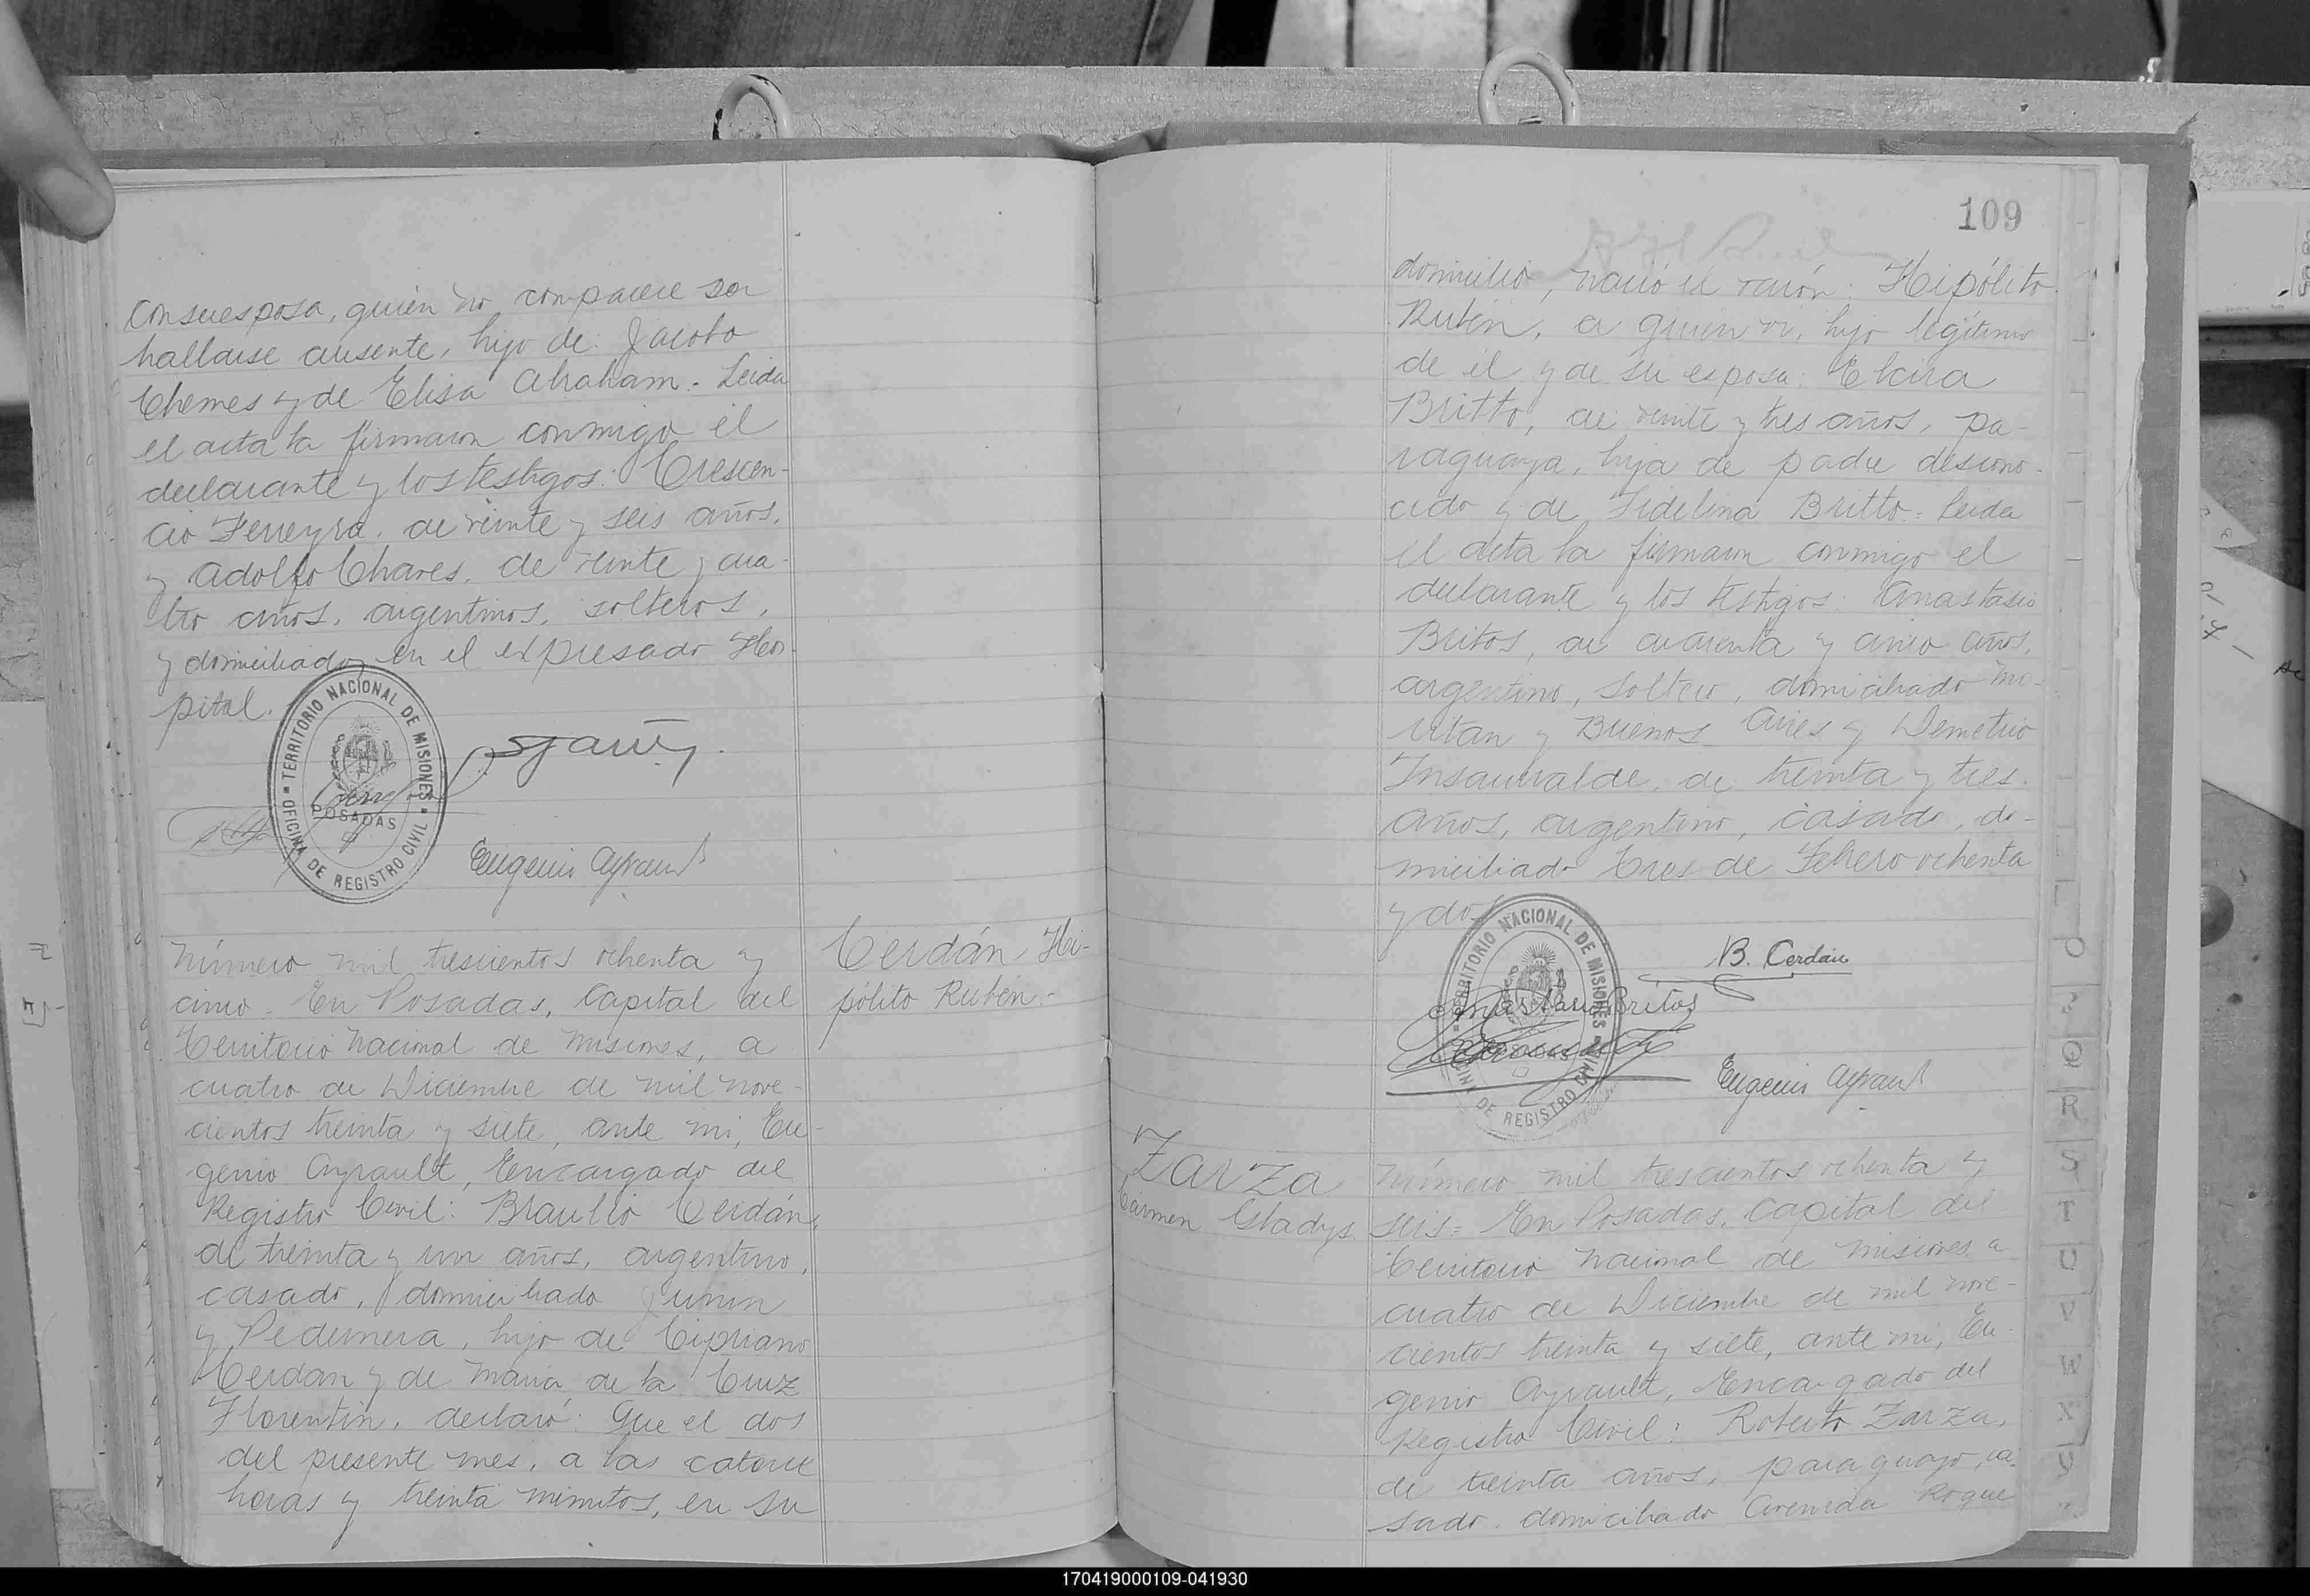 con su esposa, quien no comparece por
hallarse ausente, hijo de: Jacobo
Chemes y de Elisa Abraham.- Leida
el acta la firmaron conmigo el
declarante y los testigos: Crescen-
cio Ferreyra, de veinte y seis años,
y Adolfo Chaves, de veinte y cua-
tro años, argentinos, solteros,
y domiciliados en el expresado Hos-
pital.
TERRITORIO NACIONAL DE MISIONES
OFICINA DE REGISTRO CIVIL
POSADAS
Eugenio Ayrault
Número mil trescientos ochenta y
cinco = En Posadas, Capital del
Territorio Nacional de Misiones, a
cuatro de Diciembre de mil nove-
cientos treinta y siete, ante mi, Eu-
genio Ayrault, Encargado del
Registro Civil: Braulio Cerdán,
de treinta y un años, argentino,
casado, domiciliado Junin
y Pedernera, hijo de Cipriano
Cerdan y de Maria de la Cruz
Florentin, declaró: Que el dos
del presente mes, a las catorce
horas y treinta minutos, en su
Cerdán, Hi-
pólito Rubén.-
109
domicilio, nació el varón: Hipólito
Rubén, a quien vi, hijo legítimo
de él y de su esposa: Elcira
Britto, de veinte y tres años, pa-
raguaya, hija de padre descono-
cido y de Fidelina Britto.= Leida
el acta la firmaron conmigo el
declarante y los testigos: Anastasio
Britos, de cuarenta y cinco años,
argentino, soltero, domiciliado Mo-
ritan y Buenos Aires y Demetrio
Insaurralde, de treinta y tres
años, argentino, casado, do-
miciliado Tres de Febrero ochenta
y dos
TERRITORIO NACIONAL DE MISIONES
OFICINA DE REGISTRO CIVIL
POSADAS
B. Cerdán
Anastasio Britos
Eugenio Ayrault
Zarza
Carmen Gladys.
Número mil trescientos ochenta y
seis = En Posadas, Capital del
Territorio Nacional de Misiones, a
cuatro de Diciembre de mil nove-
cientos treinta y siete, ante mi, Eu-
genio Ayrault, Encargado del
Registro Civil: Roberto Zarza,
de treinta años, paraguayo, ca-
sado, domiciliado Avenida Roque
O
P
Q
R
S
T
U
V
W
X
Y
170419000109-041930